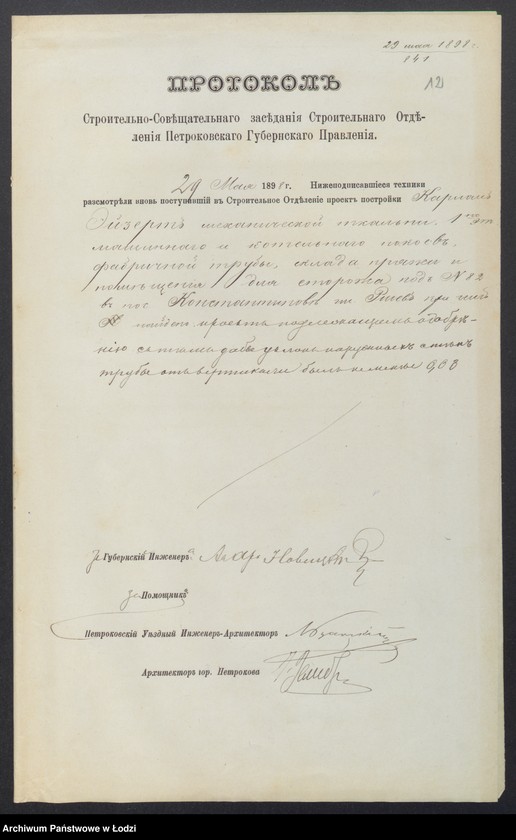 29 мая 1898 г.
141
12
ПРОТОКОЛЪ
Строительно-Совѣщательнаго засѣданія Строительнаго Отдѣ-
ленія Петроковскаго Губернскаго Правленія.
29 Мая 1898 г. Нижеподписавшіеся техники
разсмотрѣли вновь поступившій въ Строительное Отдѣленіе проектъ постройки Карломъ
Эйзертъ механической ткальни, 1
машиннаго и котельнаго покоевъ,
фабричной трубы, склада пряжи и
помѣщенія для сторожа подъ № 82
въ пос Константиновѣ при чемъ
проектъ подлежащимъ одобрѣ-
нію съ тѣмъ дабы уклонъ наружныхъ стѣнъ
трубы отъ вертикали былъ не менѣе 0,03
За Губернскій Инженеръ Новицкій
за Помощникъ
Петроковскій Уѣздный Инженеръ-Архитекторъ
Архитекторъ гор. Петрокова
Archiwum Państwowe w Łodzi